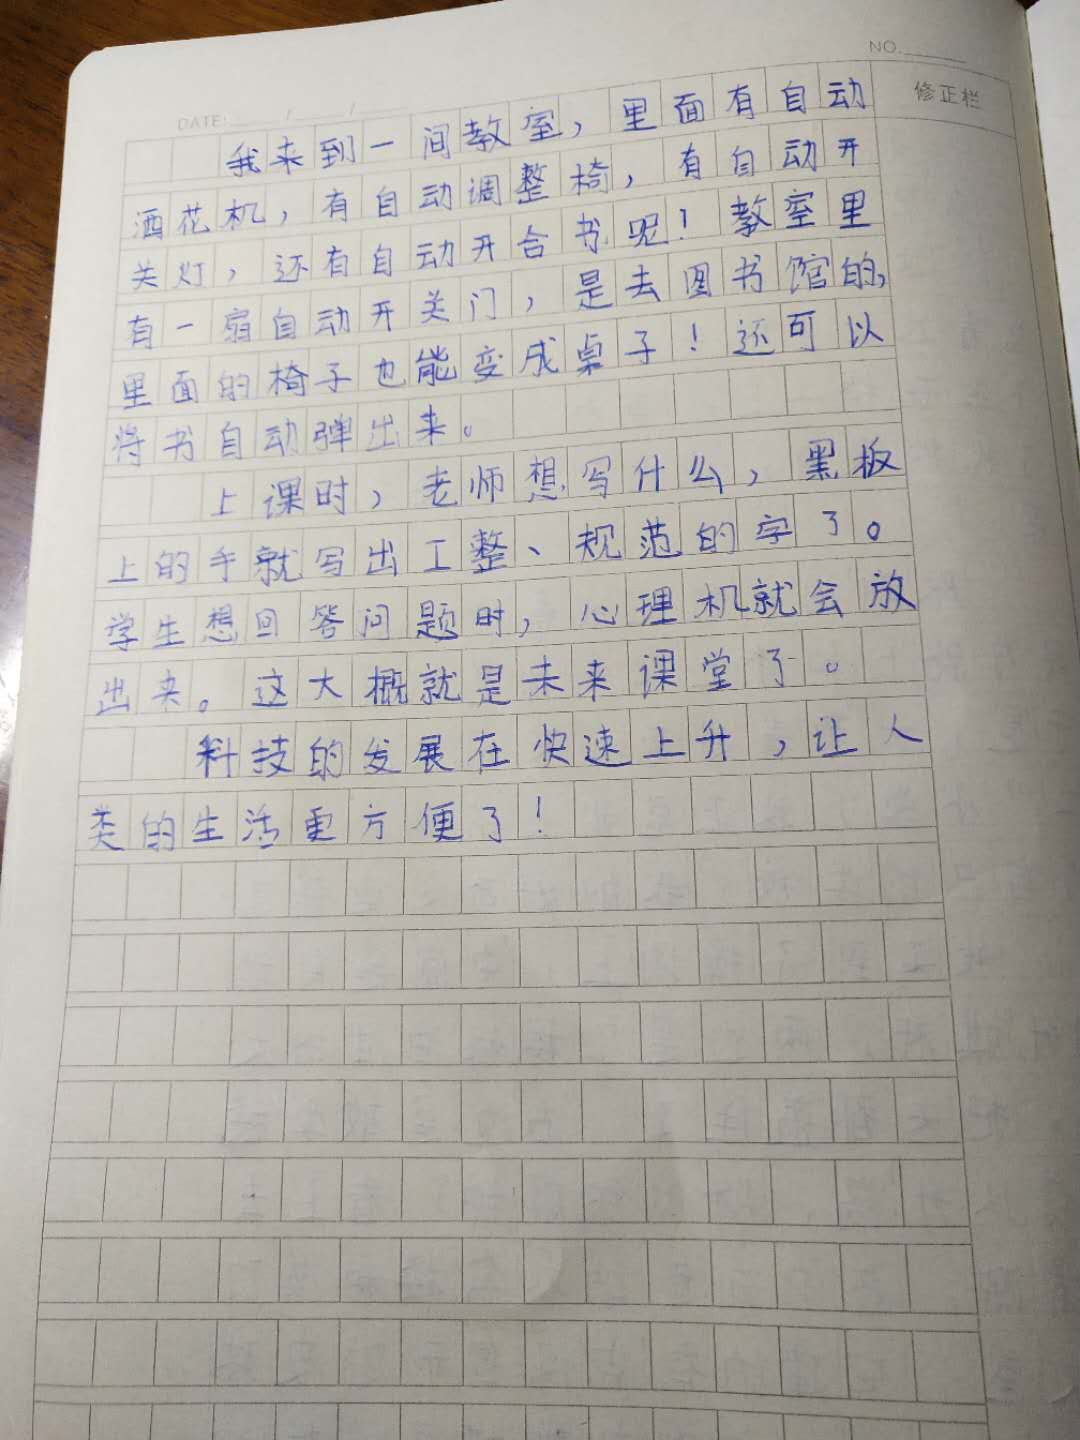 NO.
修正栏
DATE: / /
我来到一间教室，里面有自动
洒花机，有自动调整椅，有自动开
关灯，还有自动开合书呢！教室里
有一扇自动开关门，是去图书馆的，
里面的椅子也能变成桌子！还可以
将书自动弹出来。
上课时，老师想写什么，黑板
上的手就写出工整、规范的字了。
学生想回答问题时，心理机就会放
出来。这大概就是未来课堂了。
科技的发展在快速上升，让人
类的生活更方便了！